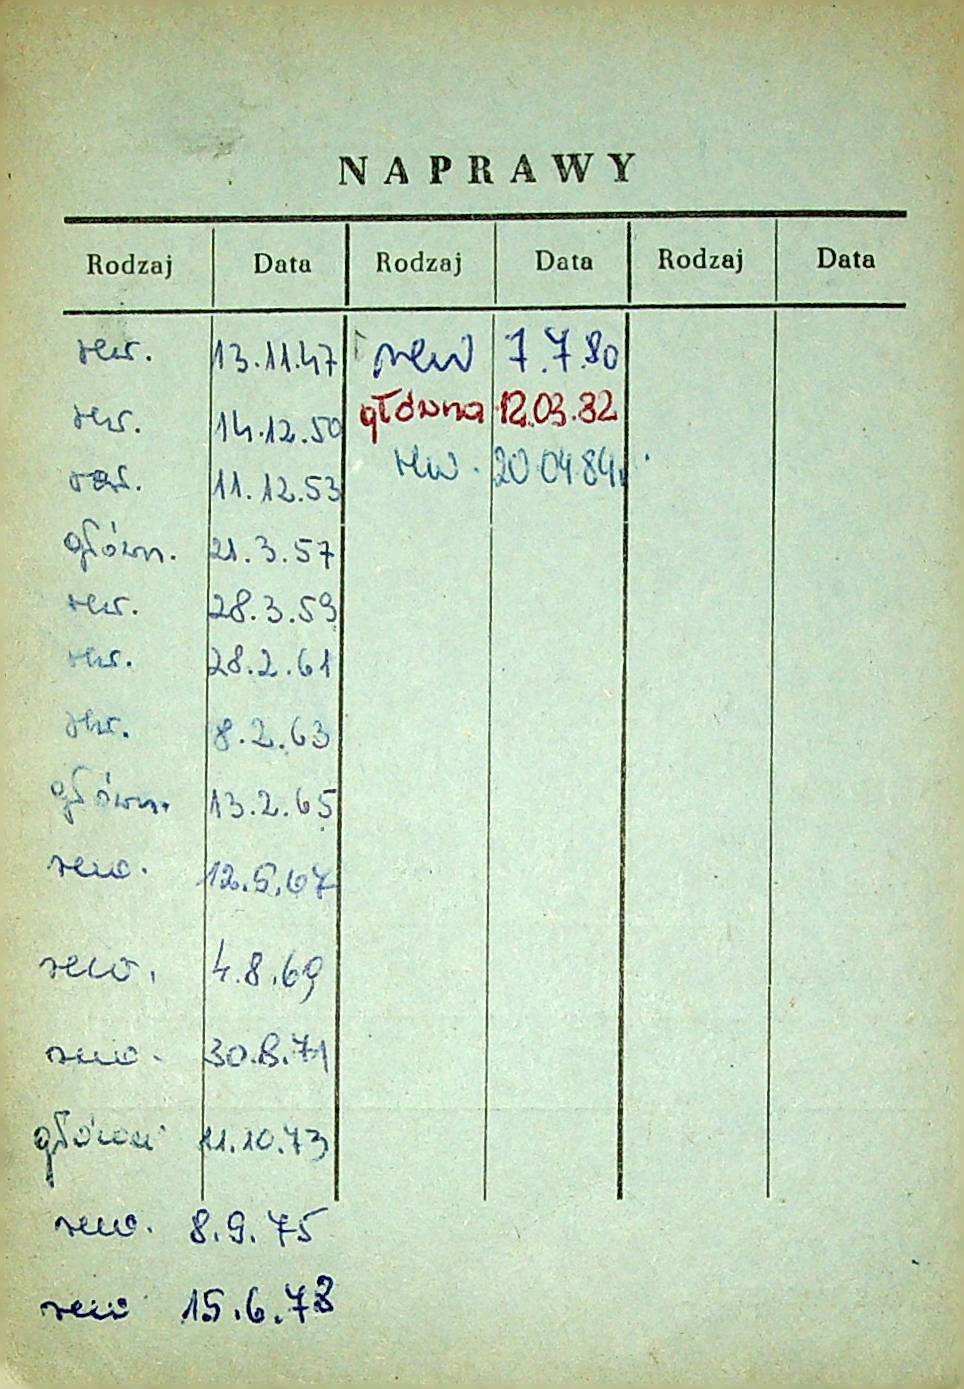 NAPRAWY
Rodzaj Data Rodzaj Data Rodzaj Data
rew. 13.11.47 rew 7.7.80
rew. 14.12.50 główna 12.03.82
rew. 11.12.53 rew. 20 04 84r.
główn. 21.3.57
rew. 28.3.59
rew. 28.2.61
rew. 8.2.63
główn. 13.2.65
rew. 12.5.67
rew. 4.8.69
rew. 30.8.71
główn 11.10.73
rew. 8.9.75
rew 15.6.78